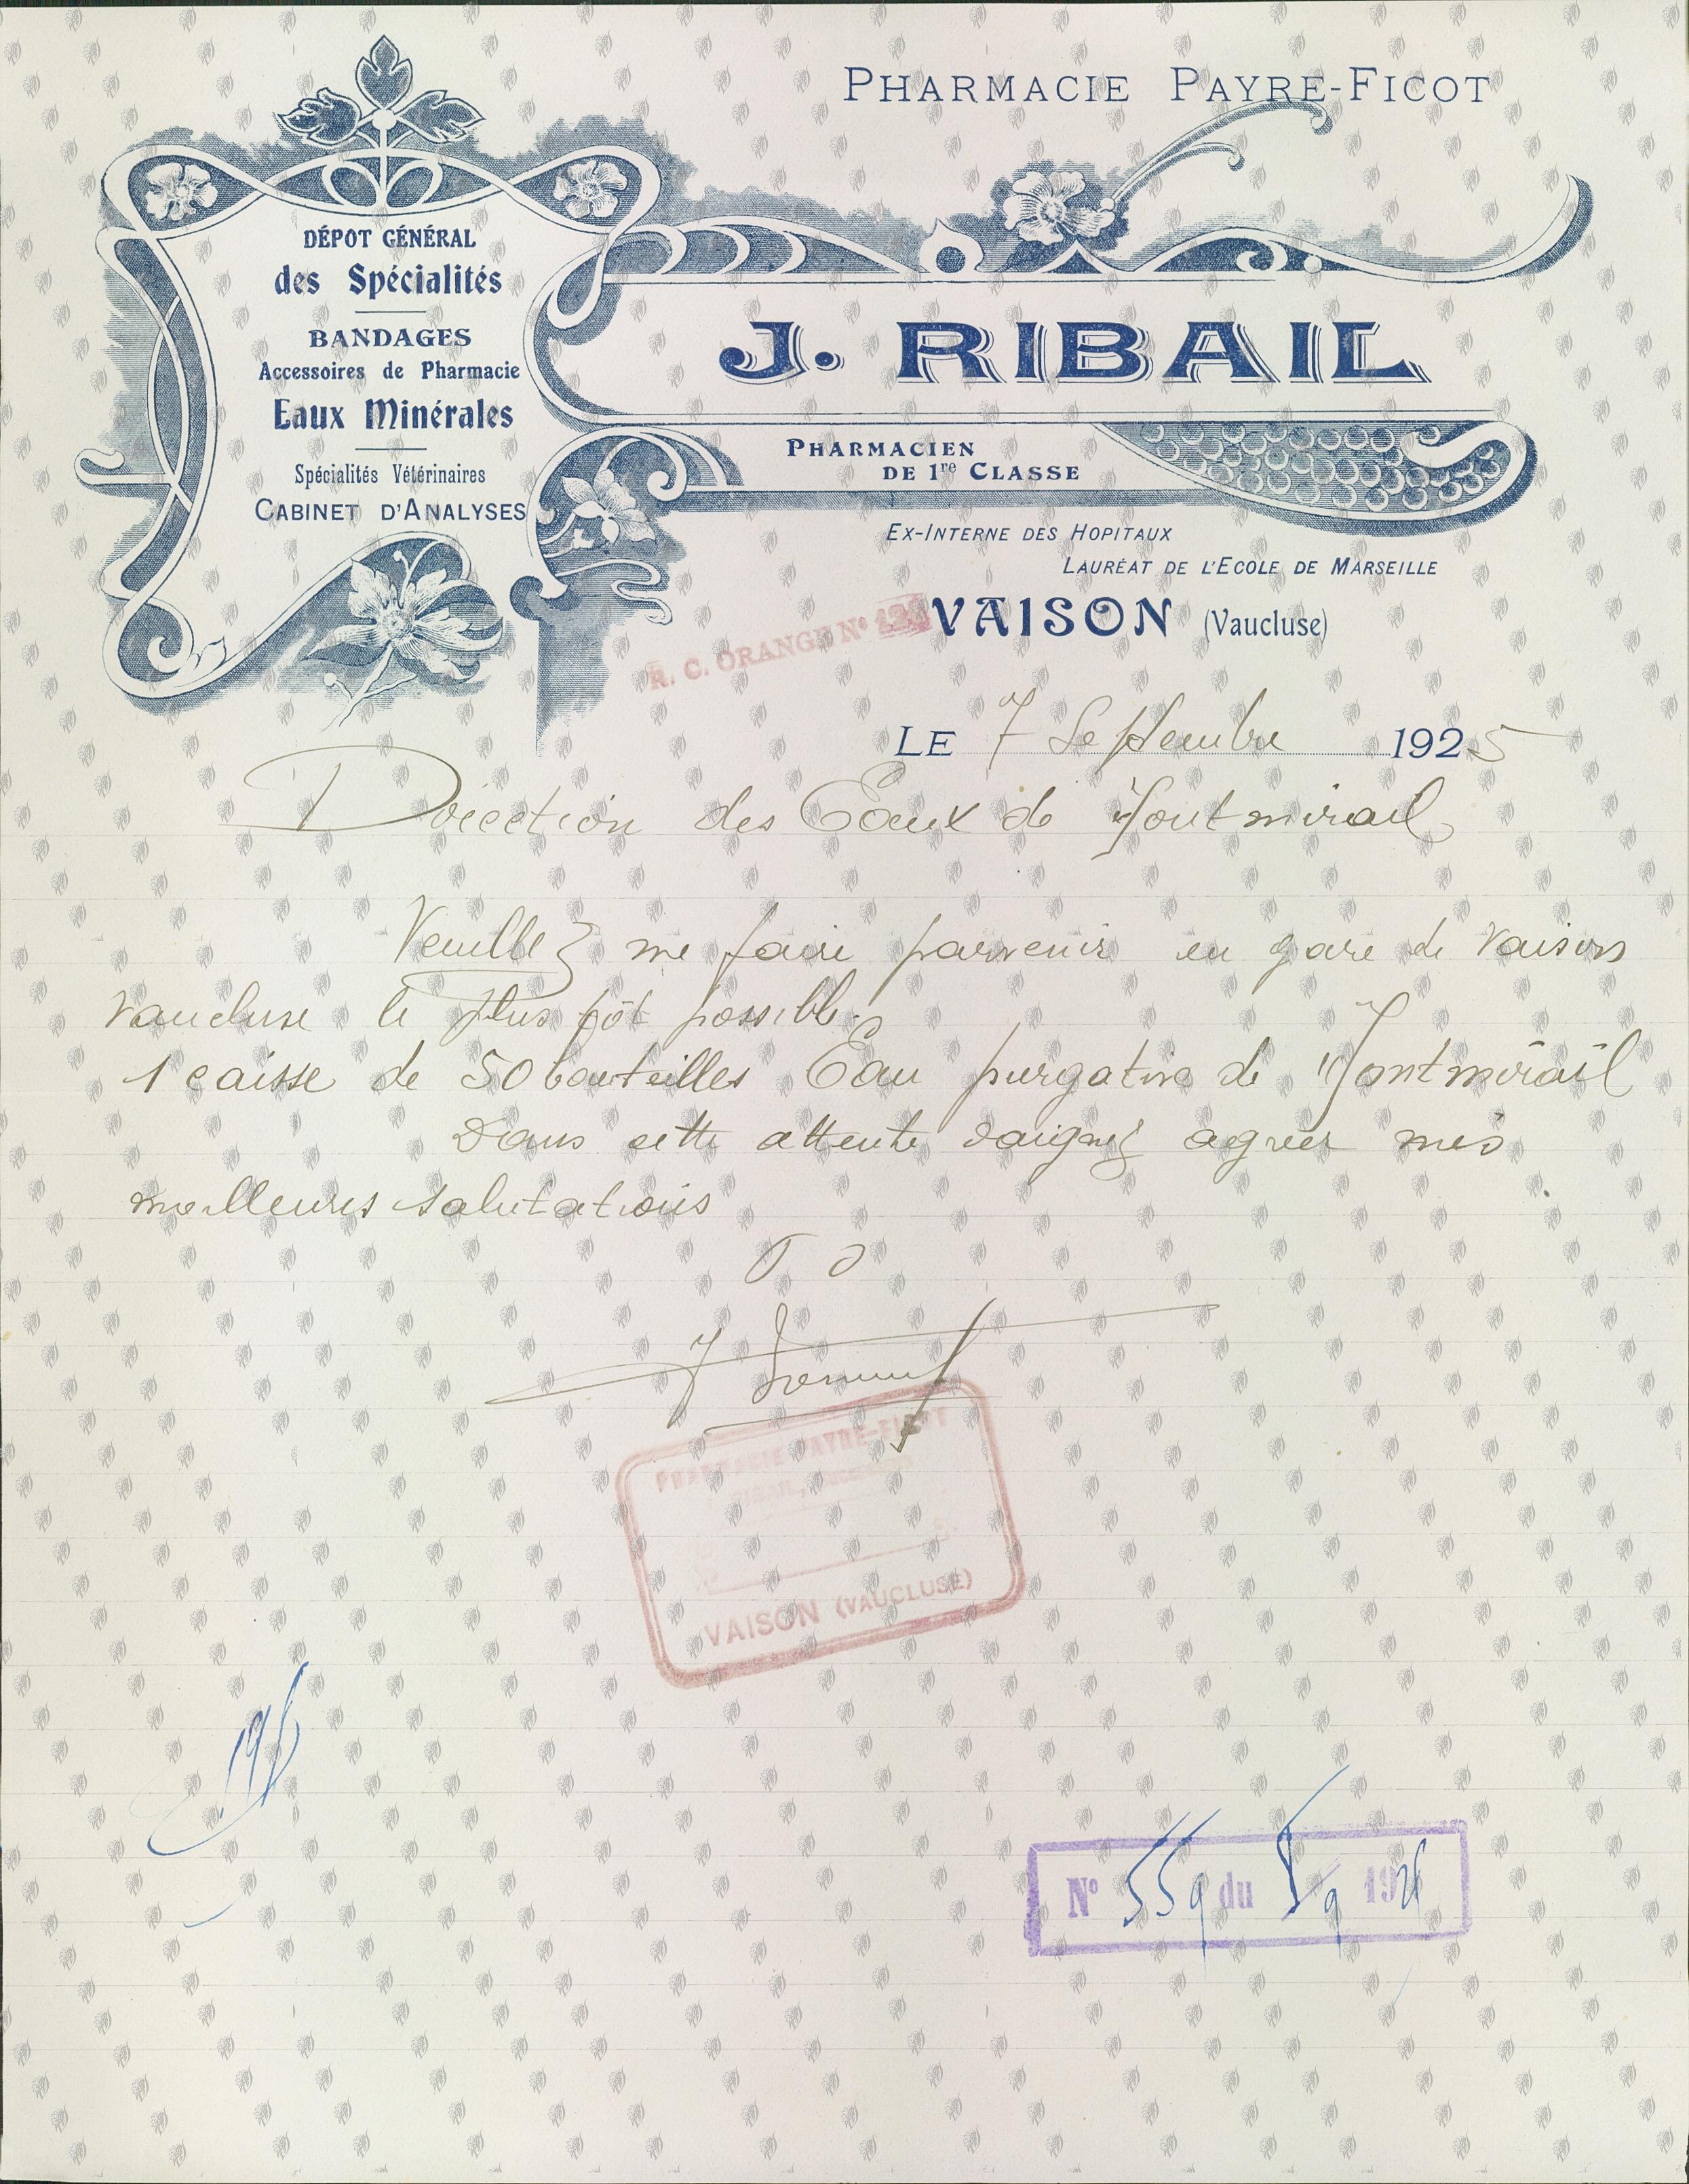 PHARMACIE PAYRE-FICOT
DÉPOT GÉNÉRAL
des Spécialités
BANDAGES
Accessoires de Pharmacie
Eaux Minérales
Spécialités Vétérinaires
CABINET D'ANALYSES
J. RIBAIL
PHARMACIEN
DE 1re CLASSE
EX-INTERNE DES HOPITAUX
LAURÉAT DE L'ECOLE DE MARSEILLE
VAISON (Vaucluse)
R. C. ORANGE N°
LE 7 Septembre 1925
Direction des Eaux de Montmirail
Veuillez me faire parvenir en gare de Vaison
Vaucluse le plus tôt possible.
1 caisse de 50 bouteilles Eau purgative de Montmirail
Dans cette attente daignez agréer mes
meilleures salutations
PHARMACIE PAYRE-FICOT
VAISON (VAUCLUSE)
N° 559 du 8/9 192